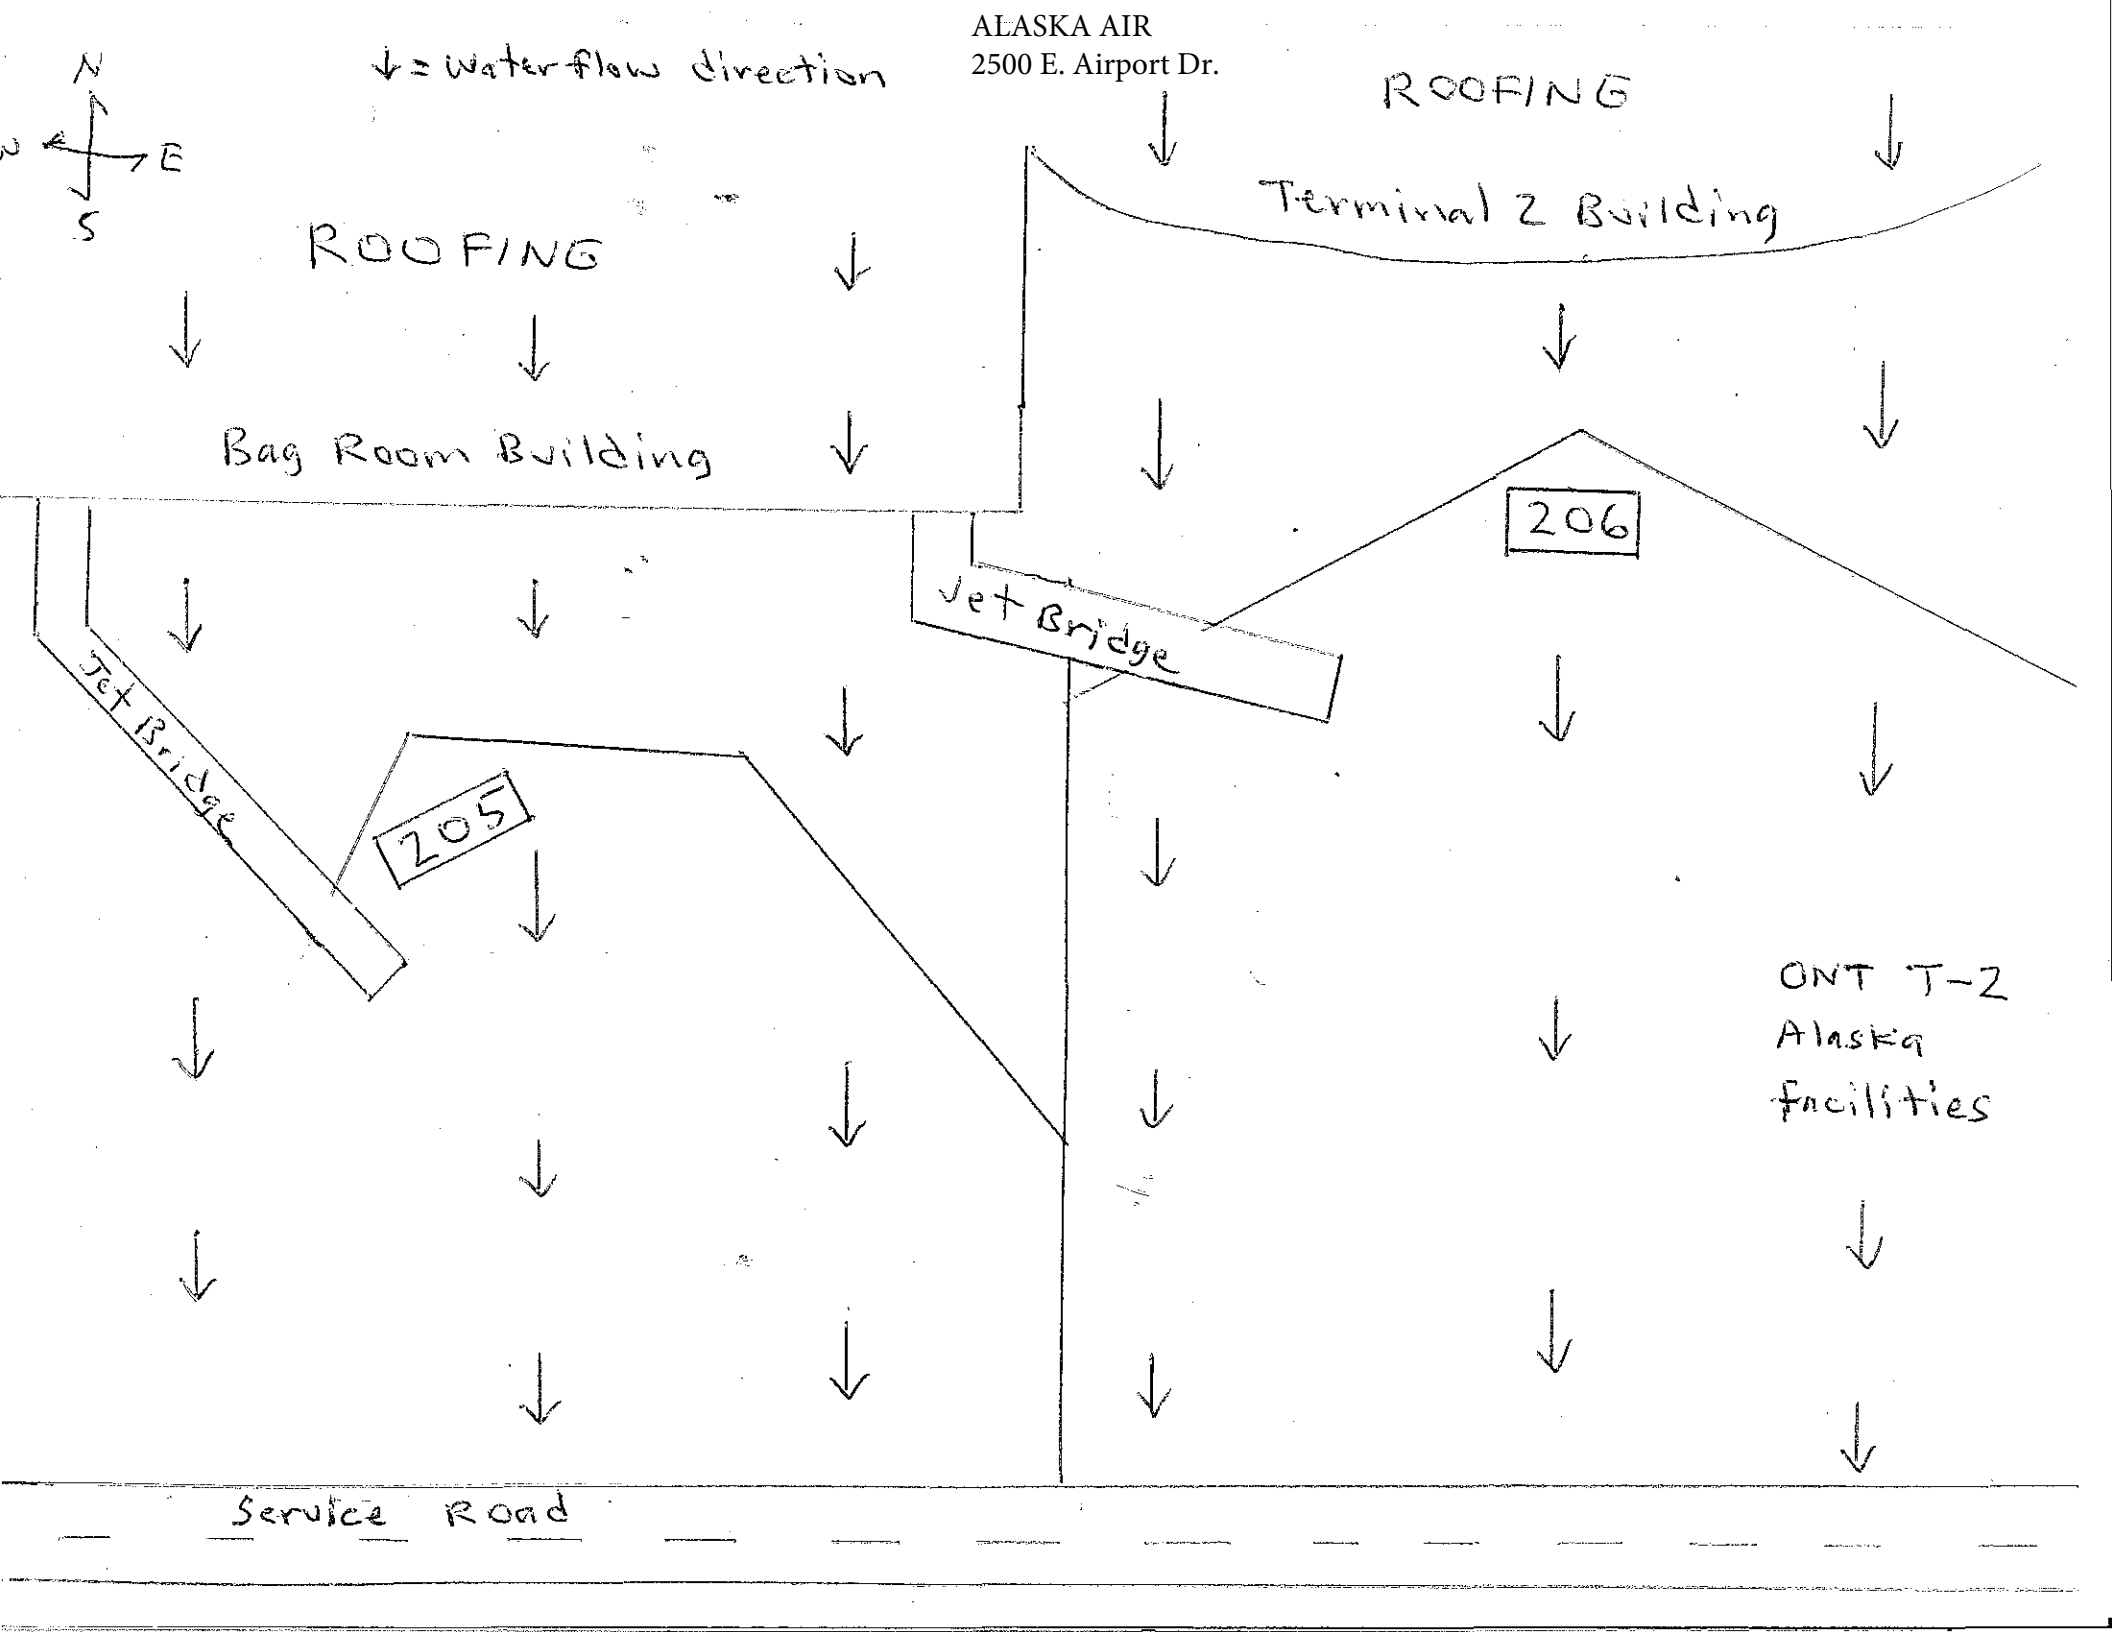 ALASKA AIR
2500 E. Airport Dr.
N
W
E
S
↓ = Water flow direction
ROOFING
Terminal 2 Building
ROOFING
Bag Room Building
206
Jet Bridge
Jet Bridge
205
ONT T-2
Alaska
facilities
Service Road